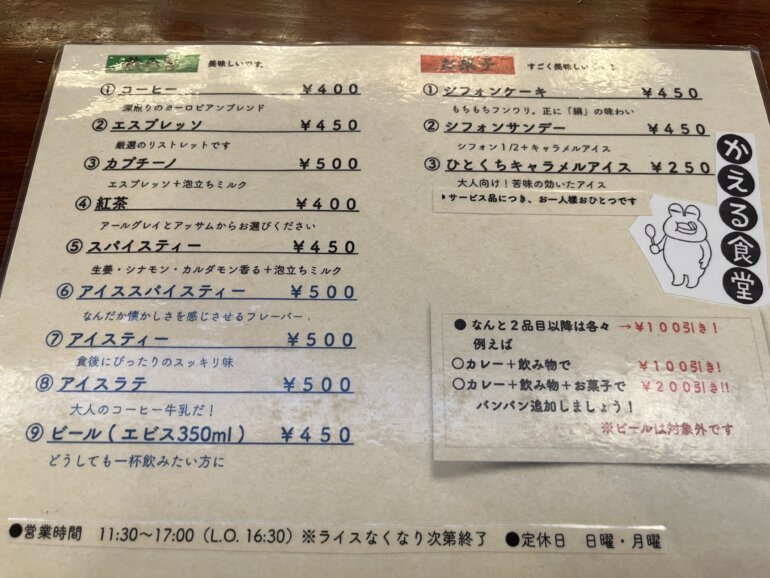 美味しいです。
①コーヒー ￥400
深煎りのヨーロピアンブレンド
②エスプレッソ ￥450
厳選のリストレットです
③カプチーノ ￥500
エスプレッソ＋泡立ちミルク
④紅茶 ￥400
アールグレイとアッサムからお選びください
⑤スパイスティー ￥450
生姜・シナモン・カルダモン香る＋泡立ちミルク
⑥アイススパイスティー ￥500
なんだか懐かしさを感じさせるフレーバー
⑦アイスティー ￥500
食後にぴったりのスッキリ味
⑧アイスラテ ￥500
大人のコーヒー牛乳だ！
⑨ビール（エビス350ml） ￥450
どうしても一杯飲みたい方に
お菓子 すごく美味しい
①シフォンケーキ ￥450
もちもちフンワリ。正に「絹」の味わい
②シフォンサンデー ￥450
シフォン1/2＋キャラメルアイス
③ひとくちキャラメルアイス ￥250
大人向け！苦味の効いたアイス
サービス品につき、お一人様おひとつです
かえる食堂
●なんと２品目以降は各々 →￥100引き！
例えば
○カレー＋飲み物で ￥100引き！
○カレー＋飲み物＋お菓子で ￥200引き!!
バンバン追加しましょう！
※ビールは対象外です
●営業時間 11:30〜17:00（L.O. 16:30）※ライスなくなり次第終了 ●定休日 日曜・月曜